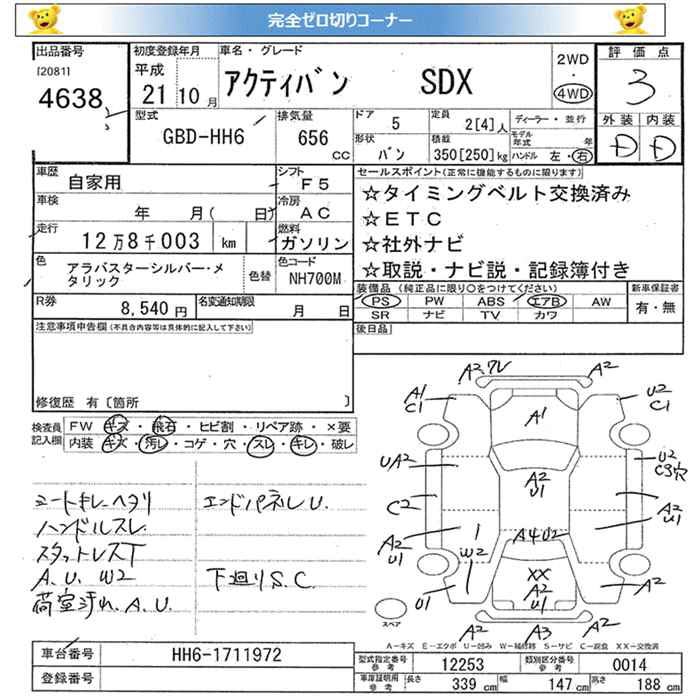 完全ゼロ切りコーナー
出品番号
[2081]
4638
初度登録年月
平成
21 10 月
車名・グレード
アクティバン SDX
2WD
・
4WD
評価点
3
型式
GBD-HH6
排気量
656 CC
ドア
5
定員
2[4]人
ディーラー・並行
形状
バン
積載
350[250]kg
モデル年式 年
ハンドル 左・右
外装 内装
D D
車歴
自家用
シフト
F5
車検
年 月( 日)
冷房
AC
走行
12万8千003 km
燃料
ガソリン
色
アラバスターシルバー・メタリック
色替
色コード
NH700M
R券
8,540 円
名変通知期限
月 日
セールスポイント(正常に機能するものに限ります)
☆タイミングベルト交換済み
☆ETC
☆社外ナビ
☆取説・ナビ説・記録簿付き
装備品(純正品に限り○をつけてください)
PS PW ABS エアB AW
SR ナビ TV カワ
新車保証書
有・無
後日品
注意事項申告欄(不具合内容等は具体的に記入して下さい)
修復歴 有〔箇所 〕
検査員記入欄
FW キズ・飛石・ヒビ割・リペア跡・×要
内装 キズ・汚レ・コゲ・穴・スレ・キレ・破レ
シートキレ.ヘタリ
ハンドルスレ
スタットレスT
A.U. W2
荷室汚れ.A.U.
エンドパネルU.
下廻りS.C.
A2 ワレ A2
A1
C1
U2
C1
A1
UA2
U2
C3穴
A2
U1
C2
A2
U1
A2
U1
W2
A4U2
XX
A2
U1
U1
A2
A2 A3 A2
スペア
A-キズ E-エクボ U-凹み W-補修跡 S-サビ C-腐食 XX-交換済
車台番号
HH6-1711972
登録番号
型式指定番号参考
12253
類別区分番号参考
0014
車庫証明用参考
長さ 339 cm
幅 147 cm
高さ 188 cm